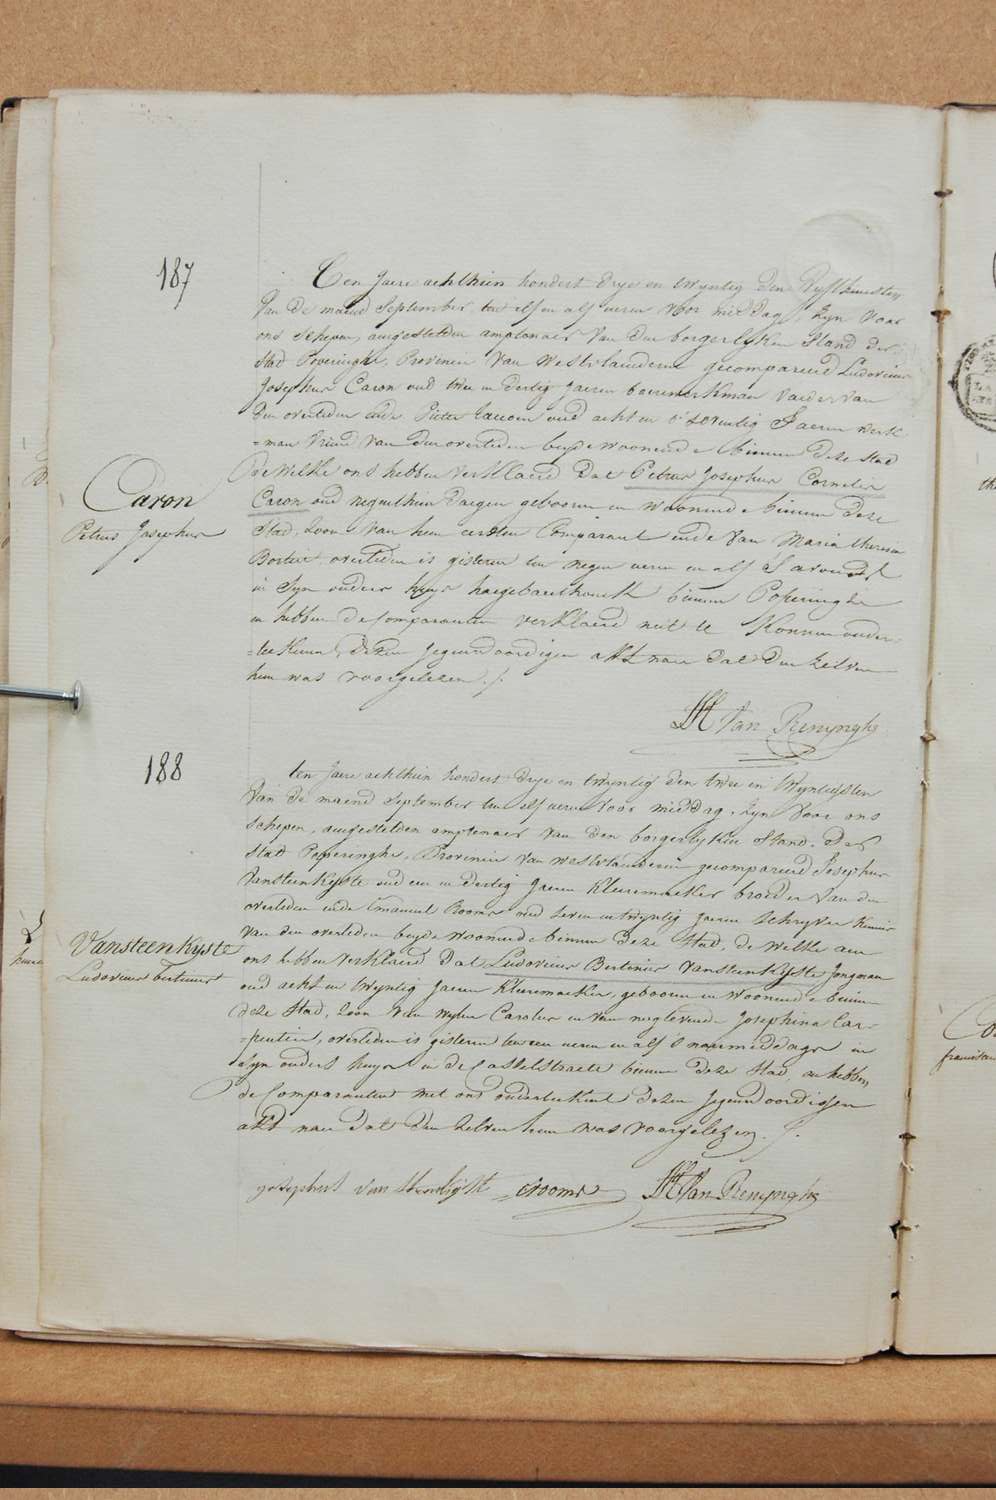 187
Ten Jaere achthien hondert drye en twyntig den Vyfthiensten
Van de maend September ten elf en alf ueren voor middag, zyn voor
ons schepen, aengestelden amptenaer van den borgerlyken Stand der
Stad Poperinghe, Provincie van Westvlaanderen gecompareerd Ludovicus
Josephus Caron oud twee en dertig Jaeren werkman Vaeder van
den overleden ende Pieter oud acht en seventig Jaeren werk
=man Vriend van den overleden beyde woonende binnen deze stad
de welke ons hebben verklaerd Dat Petrus Josephus Cornelis
Caron oud negenthien daegen gebooren en woonende binnen deze
Stad, Zoon van hem eersten Comparant ende van Maria theresia
overleden is gisteren ten negen ueren en alf S'avonds
in syn ouders huys binnen Poperinghe
en hebben de Comparanten verklaerd niet te Konnen onder=
=teekenen, dezen Jegenwoordigen akt naer dat den zelven
hun was voorgelezen ./.
Caron
Petrus Josephus
Van Renynghe
188
ten Jaere achthien hondert drye en twyntig den twee en twyntigsten
Van de maend September ten elf ueren voor middag, zyn voor ons
schepen, aengestelden amptenaer van den borgerlyken Stand, der
Stad Poperinghe, Provincie van Westvlaanderen gecompareerd Josephus
VansteenKyste oud een en dertig Jaeren Kleermaeker broeder van den
overleden ende Emanuel Rooms oud seven en twyntig Jaeren schryver Kennis
van den overleden beyde woonende binnen deze Stad, de welke aen
ons hebben verklaerd Dat Ludovicus Bertinus VansteenKyste Jongman
oud acht en twyntig Jaeren Kleermaeker, gebooren en woonende binnen
deze Stad, Zoon van wylen Carolus en van nuglevende Josephina Car=
=pentier, overleden is gisteren ten een ueren en alf S'naermiddags in
syn ouders huys in de Casselstraete binnen deze Stad, en hebben
de Comparanten met ons onderteekent dezen Jegenwoordigen
akt naer dat den zelven hun was voorgelezen ./.
VansteenKyste
Ludovicus bertinus
josephus van steenkyste Rooms Van Renynghe